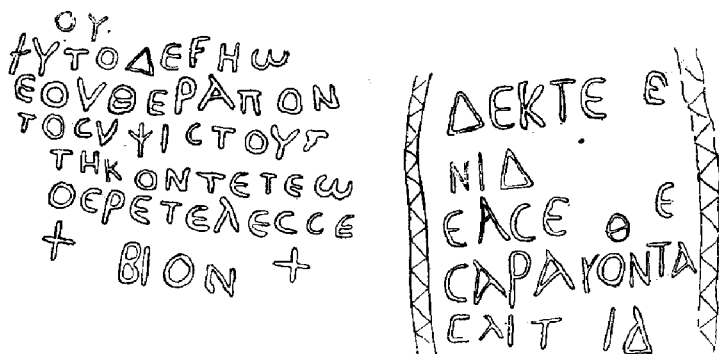 ΟΥ.
ΤΥΤΟΔΕΓΗω
ΕΟVΘΕΡΑΠΟΝ
ΤΟϹΥΨΙϹΤΟΥ
ΤΗΚΟΝΤΕΤΕω
ΟΕΡΕΤΕΛΕϹϹΕ
+ ΒΙΟΝ +
ΔΕΚΤΕ Ε
ΝΙΔ
ΕΑϹΕ Θ Ε
ϹΑΡΑΥΟΝΤΑ
ϹΛΙΤ ΙΔ